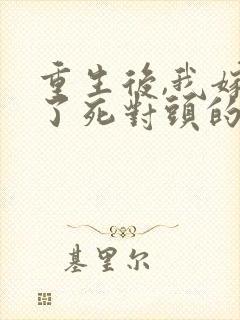 重生後,我嫁
了死對頭的
基里尔